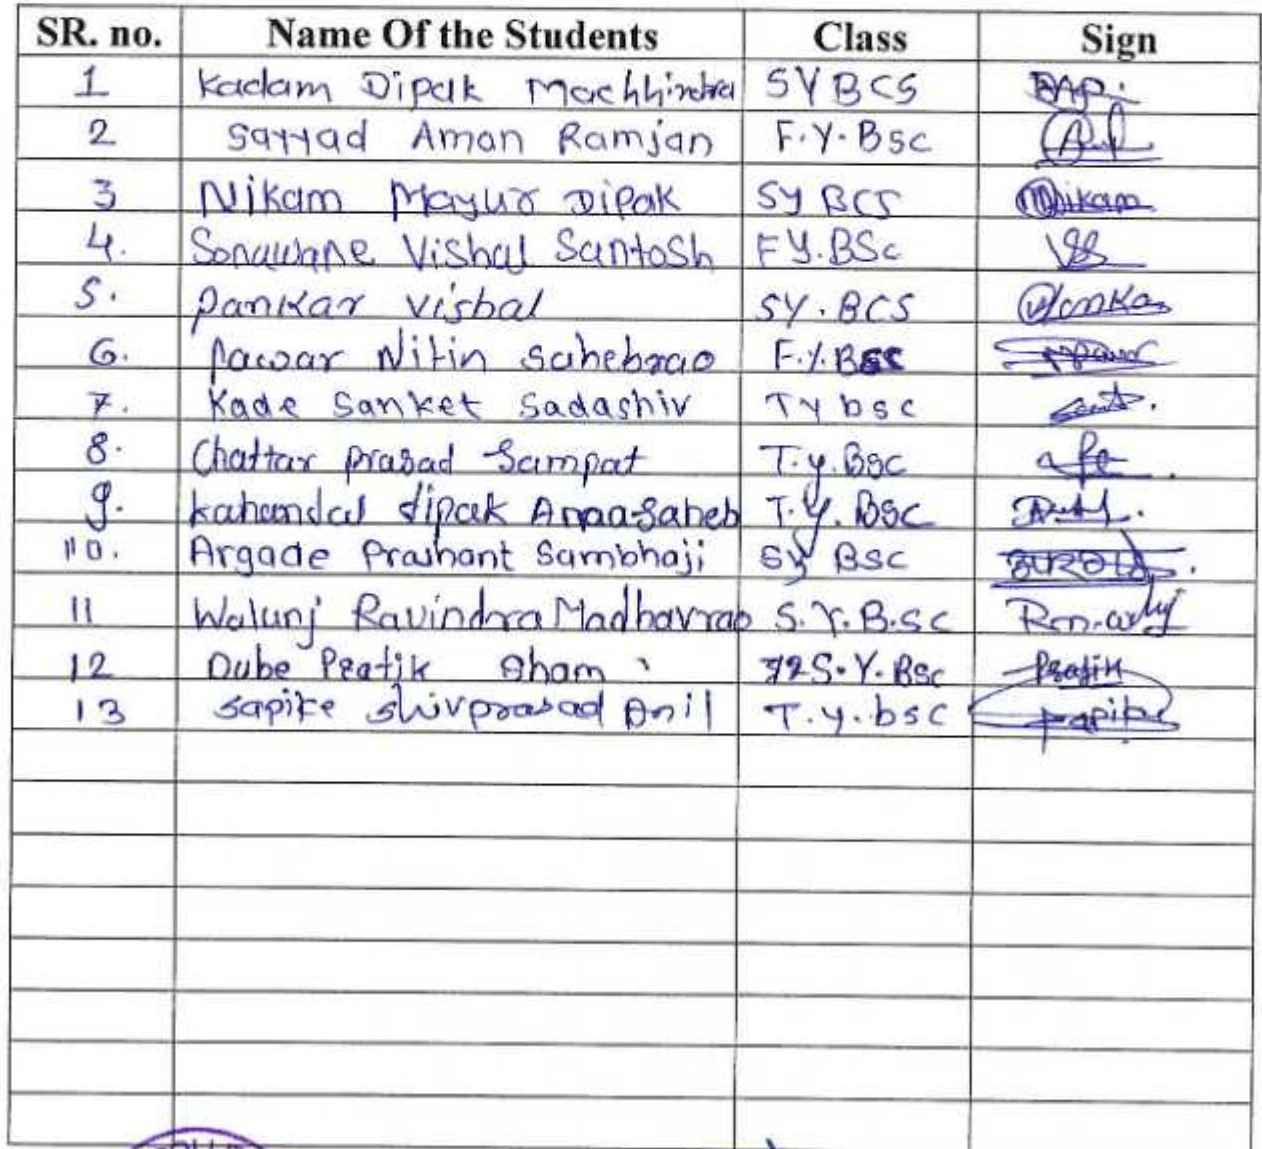 SR. no. Name Of the Students Class Sign
1 Kadam Dipak Machhindra SYBCS
2 Sayyad Aman Ramjan F.Y.Bsc
3 Nikam Mayur Dipak SY BCS Nikam
4. Sonawane Vishal Santosh FY.BSc
5. Pankar Vishal SY.BCS
6. Pawar Nitin Sahebrao F.Y.Bsc
7. Kade Sanket Sadashiv TY bsc
8. Chattar prasad Sampat T.y.Bsc
9. kahandal dipak Annasaheb T.Y.BSC
10. Argade Prashant Sambhaji SY BSC
11 Walunj Ravindra Madhavrao S.Y.B.Sc
12 Dube Pratik Sham S.Y.Bsc Pratik
13 Sapike shivprasad Anil T.y.bsc Sapike